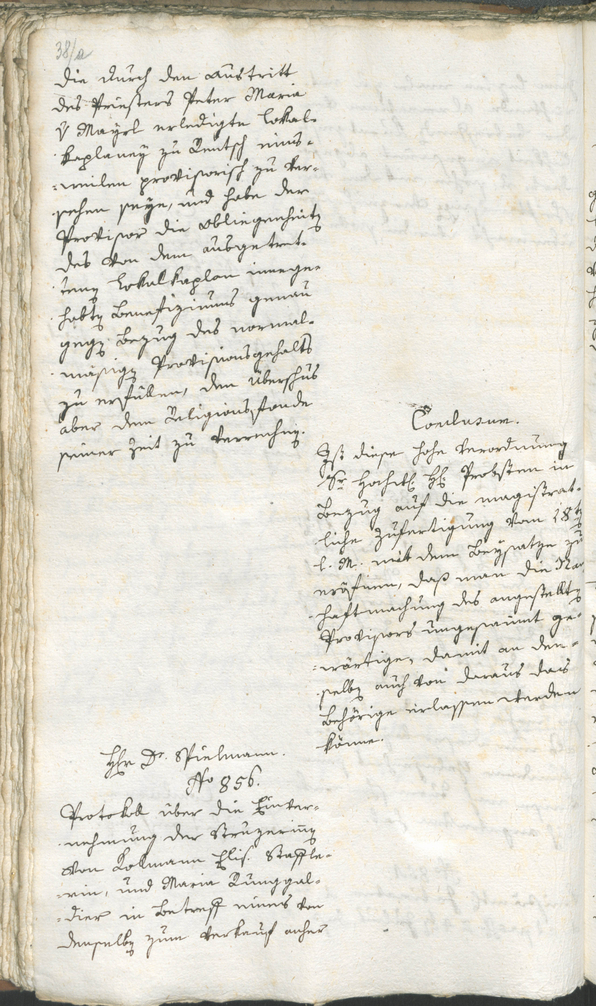 38/a
die durch den Austritt
des Priesters Peter Maria
v Mayrl erledigte Lokal-
kaplaney zu Rentsch eins-
weilen provisorisch zu ver-
sehen seye, und habe der
Provisor die Obliegenheitn
des von dem ausgetret-
tenen Lokalkaplan innege-
habtn Benefiziums genau
gegen Bezug des normal-
mäsign Provisionsgehalts
zu erfüllen, den Überschus
aber dem Religionsfonde
seiner Zeit zu verrechnen.
Conclusum.
Ist diese hohe Verordnung
Sr Hochw. H. Probsten in
Bezug auf die magistrat-
liche Zufertigung vom 28tn
l. M. mit dem Beysatze zu
eröfnen, daß man die Na
haftmachung des angestelltn
Provisors ungesäumt ge-
wärtige, damit an den-
selbn auch von daraus das
Behörige erlassen werden
könne.
Hhr Dr. Spielmann.
No 856.
Protokoll über die Einver-
nehmung der Krazerinn
von Kollmann Elis. Staffle-
rin, und Maria Runggal-
dier in Betreff eines von
denselbn zum Verkauf anher